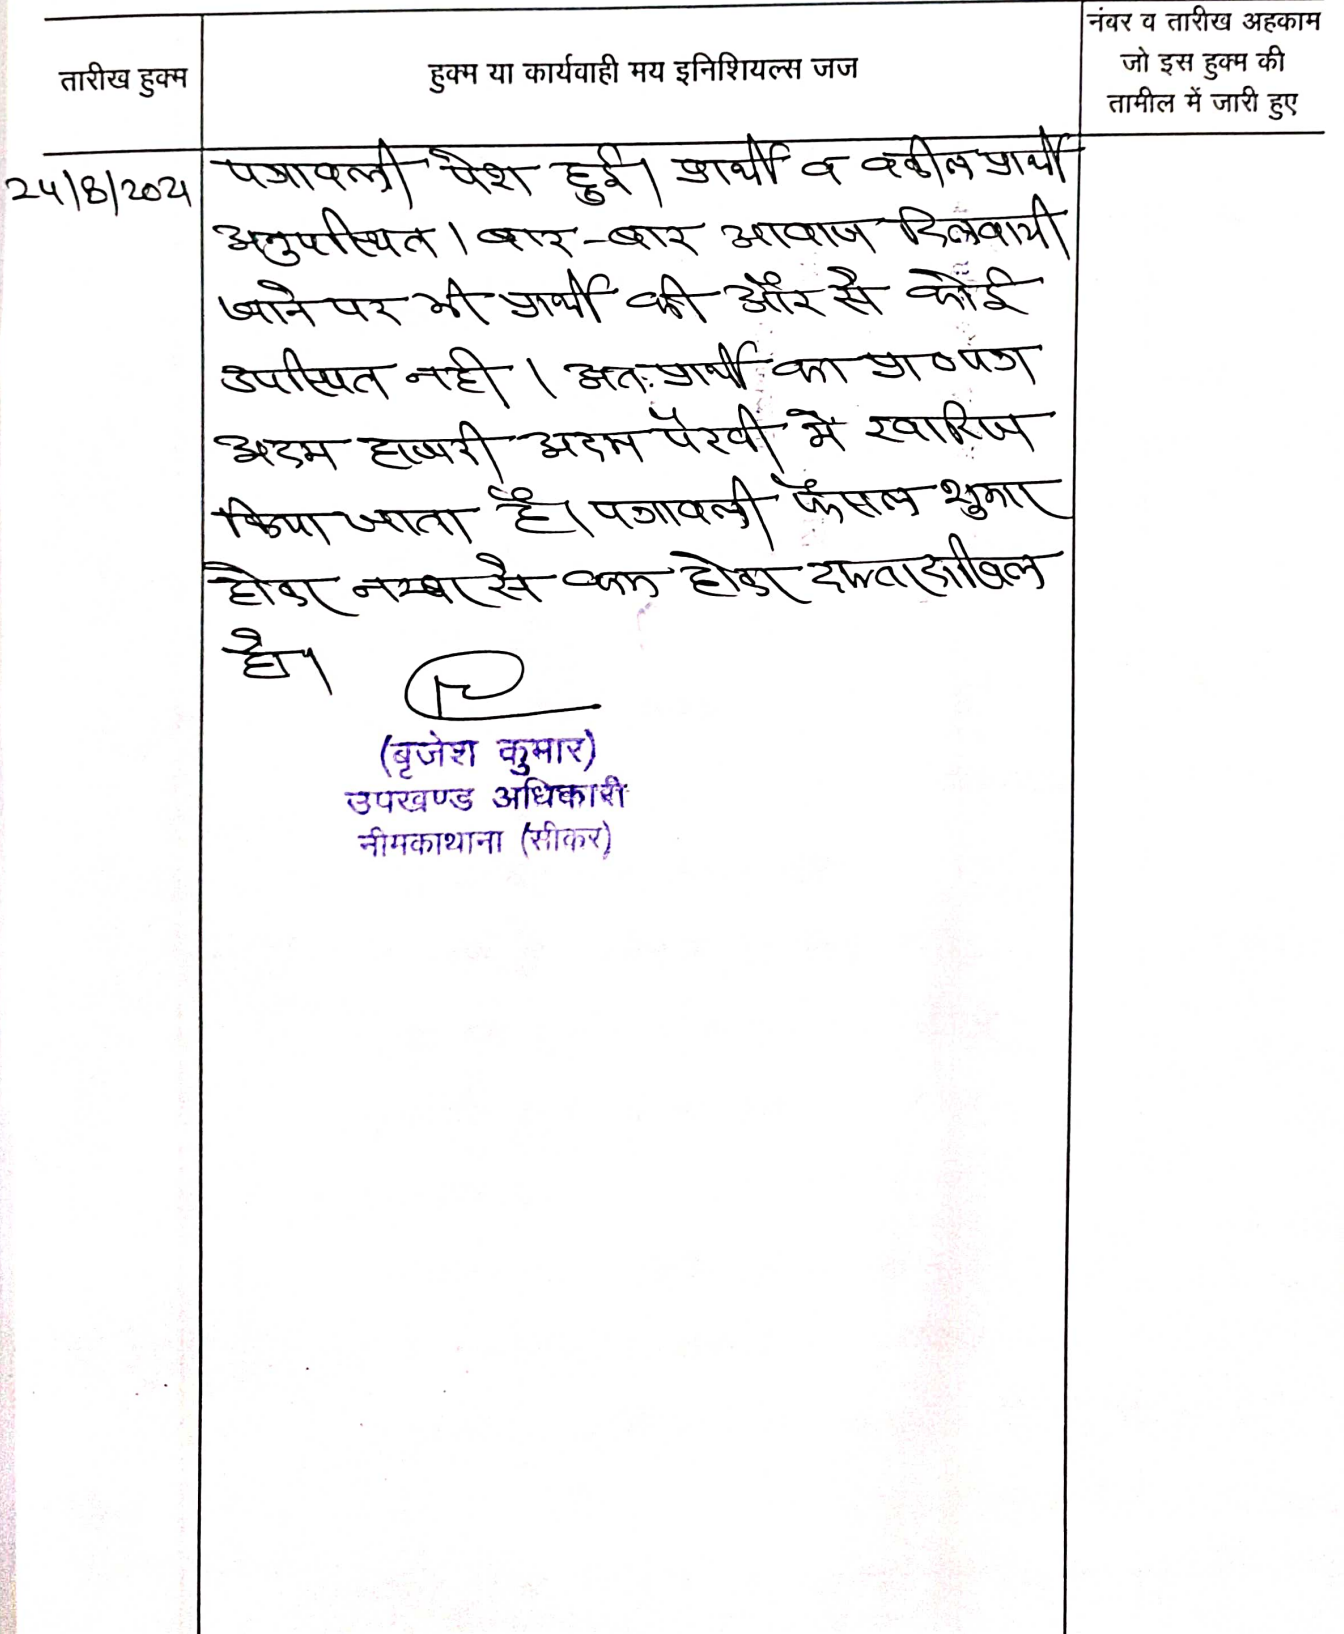 तारीख हुक्म
हुक्म या कार्यवाही मय इनिशियल्स जज
नंबर व तारीख अहकाम
जो इस हुक्म की
तामील में जारी हुए
पत्रावली पेश हुई। प्रार्थी व वकील प्रार्थी
अनुपस्थित। बार-बार आवाज दिलवायी
जाने पर भी प्रार्थी की ओर से कोई
उपस्थित नही। अतः प्रार्थी का प्रा०पत्र
अदम हाजरी अदम पैरवी में खारिज
किया जाता है। पत्रावली फैसल शुमार
होकर नम्बर से कम होकर दफ्तर दाखिल
हो।
(बृजेश कुमार)
उपखण्ड अधिकारी
नीमकाथाना (सीकर)